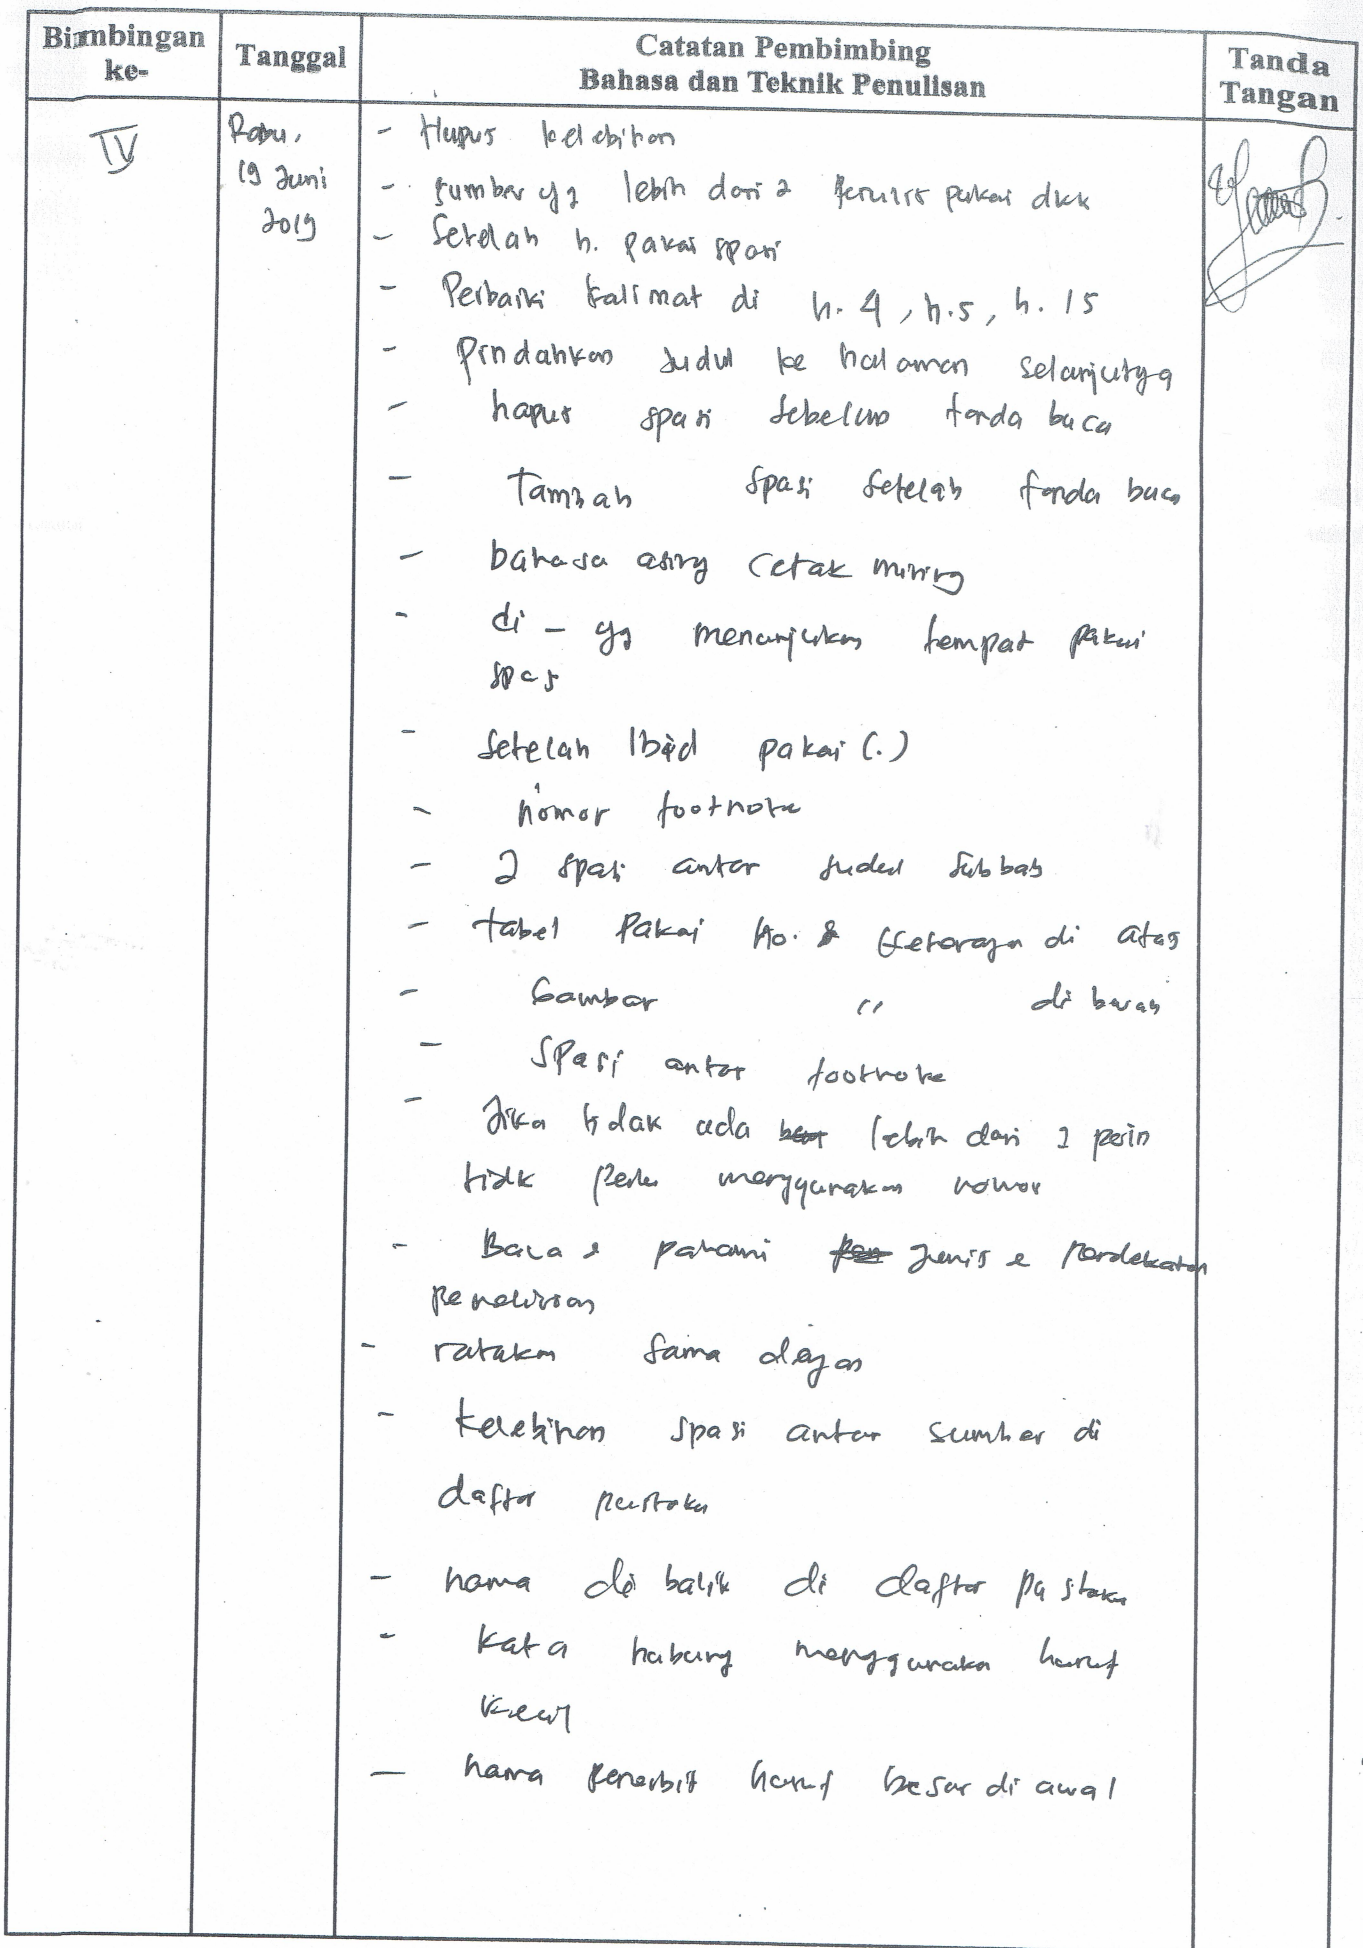 Bimbingan ke-
Tanggal
Catatan Pembimbing
Bahasa dan Teknik Penulisan
Tanda Tangan
IV
Rabu,
19 Juni
2019
- Hapus kelebihan
- sumber yg lebih dari 2 penulis pakai dkk
- Setelah h. pakai spasi
- Perbaiki kalimat di h. 4, h.5, h. 15
- Pindahkan Judul ke halaman selanjutnya
- hapus spasi sebelum tanda baca
- Tambah spasi setelah tanda baca
- bahasa asing cetak miring
- di - yg menunjukan tempat pakai
spasi
- Setelah Ibid pakai (.)
- nomor footnote
- 2 spasi antar judul subbab
- tabel Pakai No. & Keterangan di atas
- Gambar " di bawah
- Spasi antar footnote
- Jika tidak ada lebih dari 1 poin
tidak perlu menggunakan nomor
- Baca & pahami Jenis & Pendekatan
Penelitian
- ratakan sama dengan
- Kelebihan spasi antar sumber di
daftar pustaka
- nama di balik di daftar pustaka
- Kata hubung menggunakan huruf
kecil
- nama penerbit huruf besar di awal